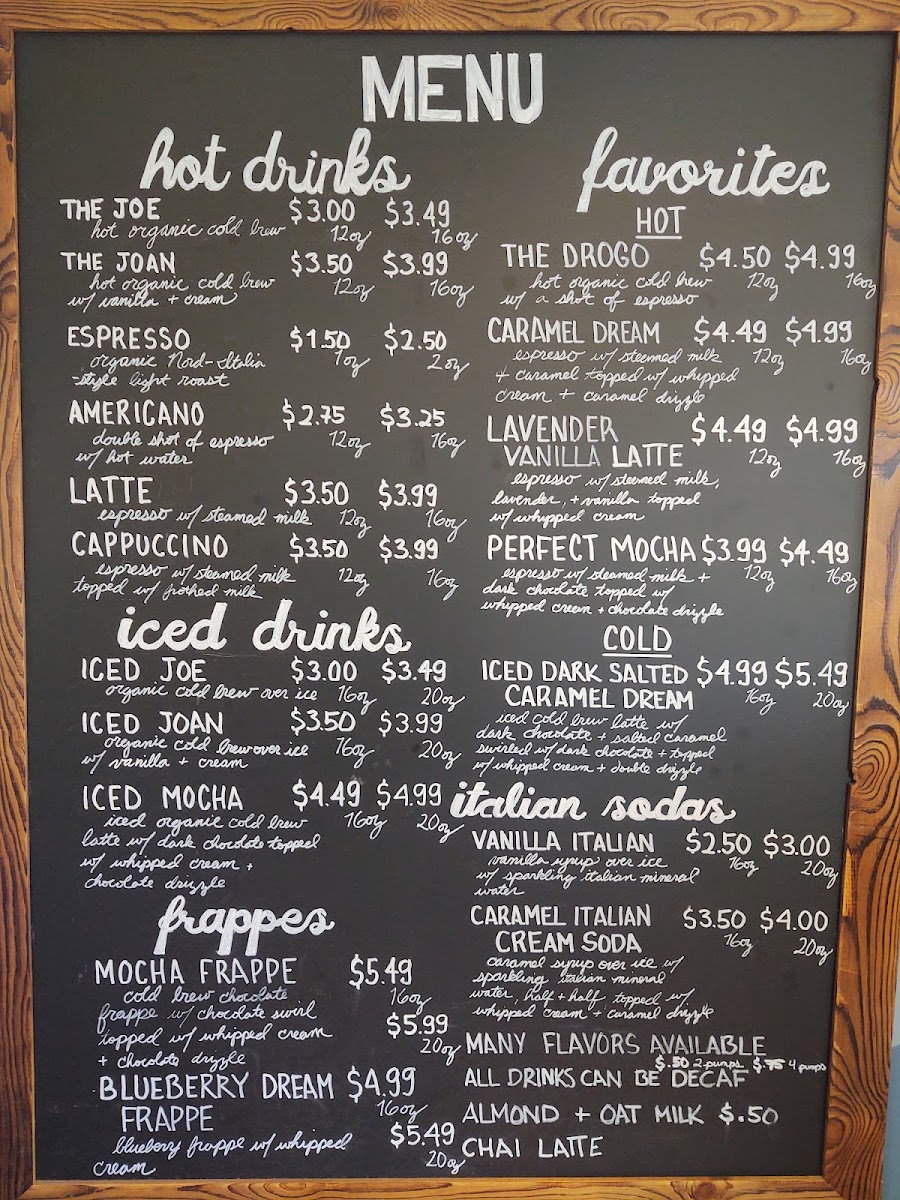 MENU
hot drinks
THE JOE $3.00 $3.49
hot organic cold brew 12oz 16oz
THE JOAN $3.50 $3.99
hot organic cold brew 12oz 16oz
w/ vanilla + cream
ESPRESSO $1.50 $2.50
organic Nord-Italia 1oz 2oz
-style light roast
AMERICANO $2.75 $3.25
double shot of espresso 12oz 16oz
w/ hot water
LATTE $3.50 $3.99
espresso w/ steamed milk 12oz 16oz
CAPPUCCINO $3.50 $3.99
espresso w/ steamed milk 12oz 16oz
topped w/ frothed milk
iced drinks
ICED JOE $3.00 $3.49
organic cold brew over ice 16oz 20oz
ICED JOAN $3.50 $3.99
organic cold brew over ice 16oz 20oz
w/ vanilla + cream
ICED MOCHA $4.49 $4.99
iced organic cold brew 16oz 20oz
latte w/ dark chocolate topped
w/ whipped cream +
chocolate drizzle
frappes
MOCHA FRAPPE $5.49
cold brew chocolate 16oz
frappe w/ chocolate swirl $5.99
topped w/ whipped cream 20oz
+ chocolate drizzle
BLUEBERRY DREAM $4.99
FRAPPE 16oz
blueberry frappe w/ whipped $5.49
cream 20oz
favorites
HOT
THE DROGO $4.50 $4.99
hot organic cold brew 12oz 16oz
w/ a shot of espresso
CARAMEL DREAM $4.49 $4.99
espresso w/ steamed milk 12oz 16oz
+ caramel topped w/ whipped
cream + caramel drizzle
LAVENDER $4.49 $4.99
VANILLA LATTE 12oz 16oz
espresso w/ steamed milk,
lavender, + vanilla topped
w/ whipped cream
PERFECT MOCHA $3.99 $4.49
espresso w/ steamed milk + 12oz 16oz
dark chocolate topped w/
whipped cream + chocolate drizzle
COLD
ICED DARK SALTED $4.99 $5.49
CARAMEL DREAM 16oz 20oz
iced cold brew latte w/
dark chocolate + salted caramel
swirled w/ dark chocolate + topped
w/ whipped cream + double drizzle
italian sodas
VANILLA ITALIAN $2.50 $3.00
vanilla syrup over ice 16oz 20oz
w/ sparkling italian mineral
water
CARAMEL ITALIAN $3.50 $4.00
CREAM SODA 16oz 20oz
caramel syrup over ice w/
sparkling italian mineral
water, half + half, topped w/
whipped cream + caramel drizzle
MANY FLAVORS AVAILABLE
$.50 2 pumps $.75 4 pumps
ALL DRINKS CAN BE DECAF
ALMOND + OAT MILK $.50
CHAI LATTE